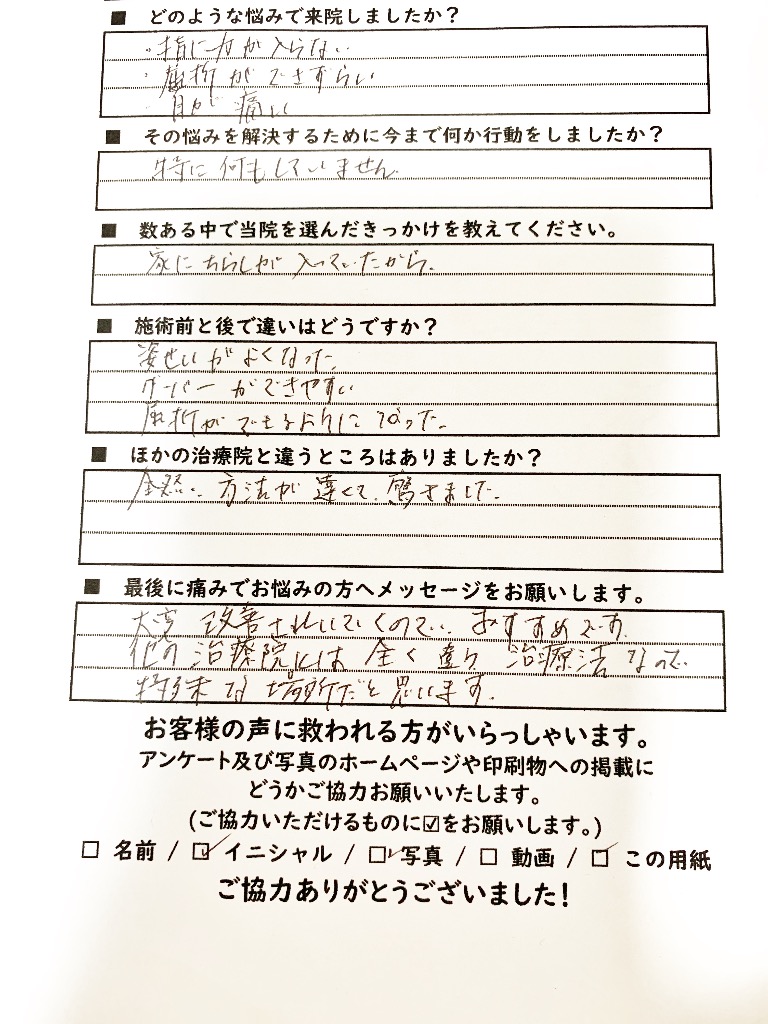 ■ どのような悩みで来院しましたか？
・指に力が入らない
・屈折ができずらい
・首が痛い
■ その悩みを解決するために今まで何か行動をしましたか？
特に何もしていません。
■ 数ある中で当院を選んだきっかけを教えてください。
家にちらしが入っていたから。
■ 施術前と後で違いはどうですか？
姿せいがよくなった。
グーパーができやすい
屈折ができるようになった。
■ ほかの治療院と違うところはありましたか？
全然、方法が違くて、驚きました。
■ 最後に痛みでお悩みの方へメッセージをお願いします。
大変 改善されていくので、おすすめです。
他の治療院には全く違う 治療法なので
特殊な場所だと思います。
お客様の声に救われる方がいらっしゃいます。
アンケート及び写真のホームページや印刷物への掲載に
どうかご協力お願いいたします。
(ご協力いただけるものに☑をお願いします。)
□ 名前 / ☑ イニシャル / ☑ 写真 / □ 動画 / ☑ この用紙
ご協力ありがとうございました！